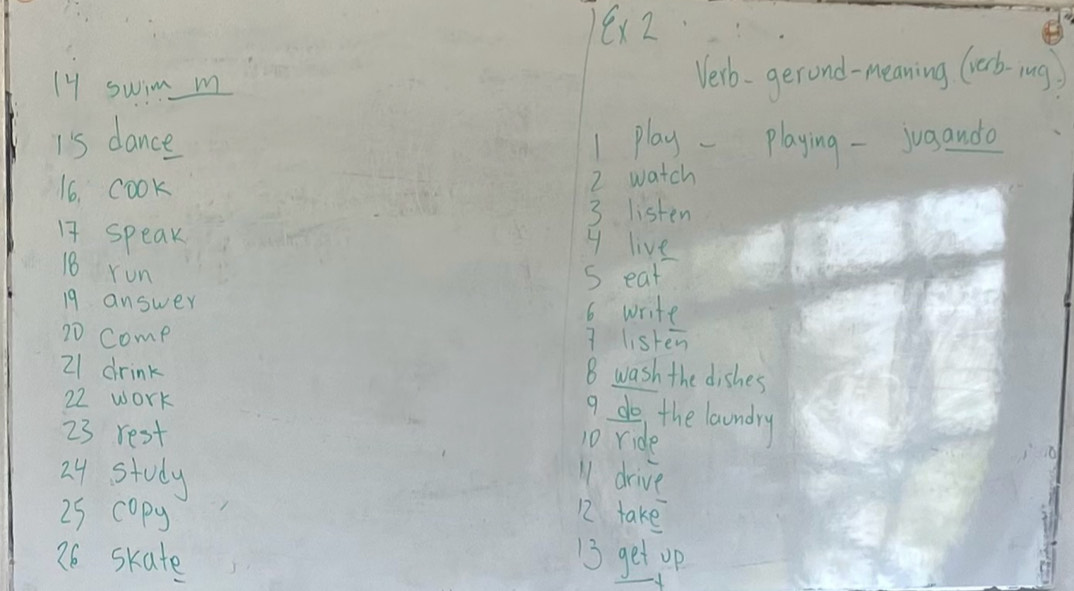 Ex 2
Verb - gerund - meaning (verb-ing)
1 play - playing - jugando
2 watch
3 listen
4 live
5 eat
6 write
7 listen
8 wash the dishes
9 do the laundry
10 ride
11 drive
12 take
13 get up
t
14 swim m
15 dance
16. cook
17 speak
18 run
19 answer
20 come
21 drink
22 work
23 rest
24 study
25 copy
26 skate